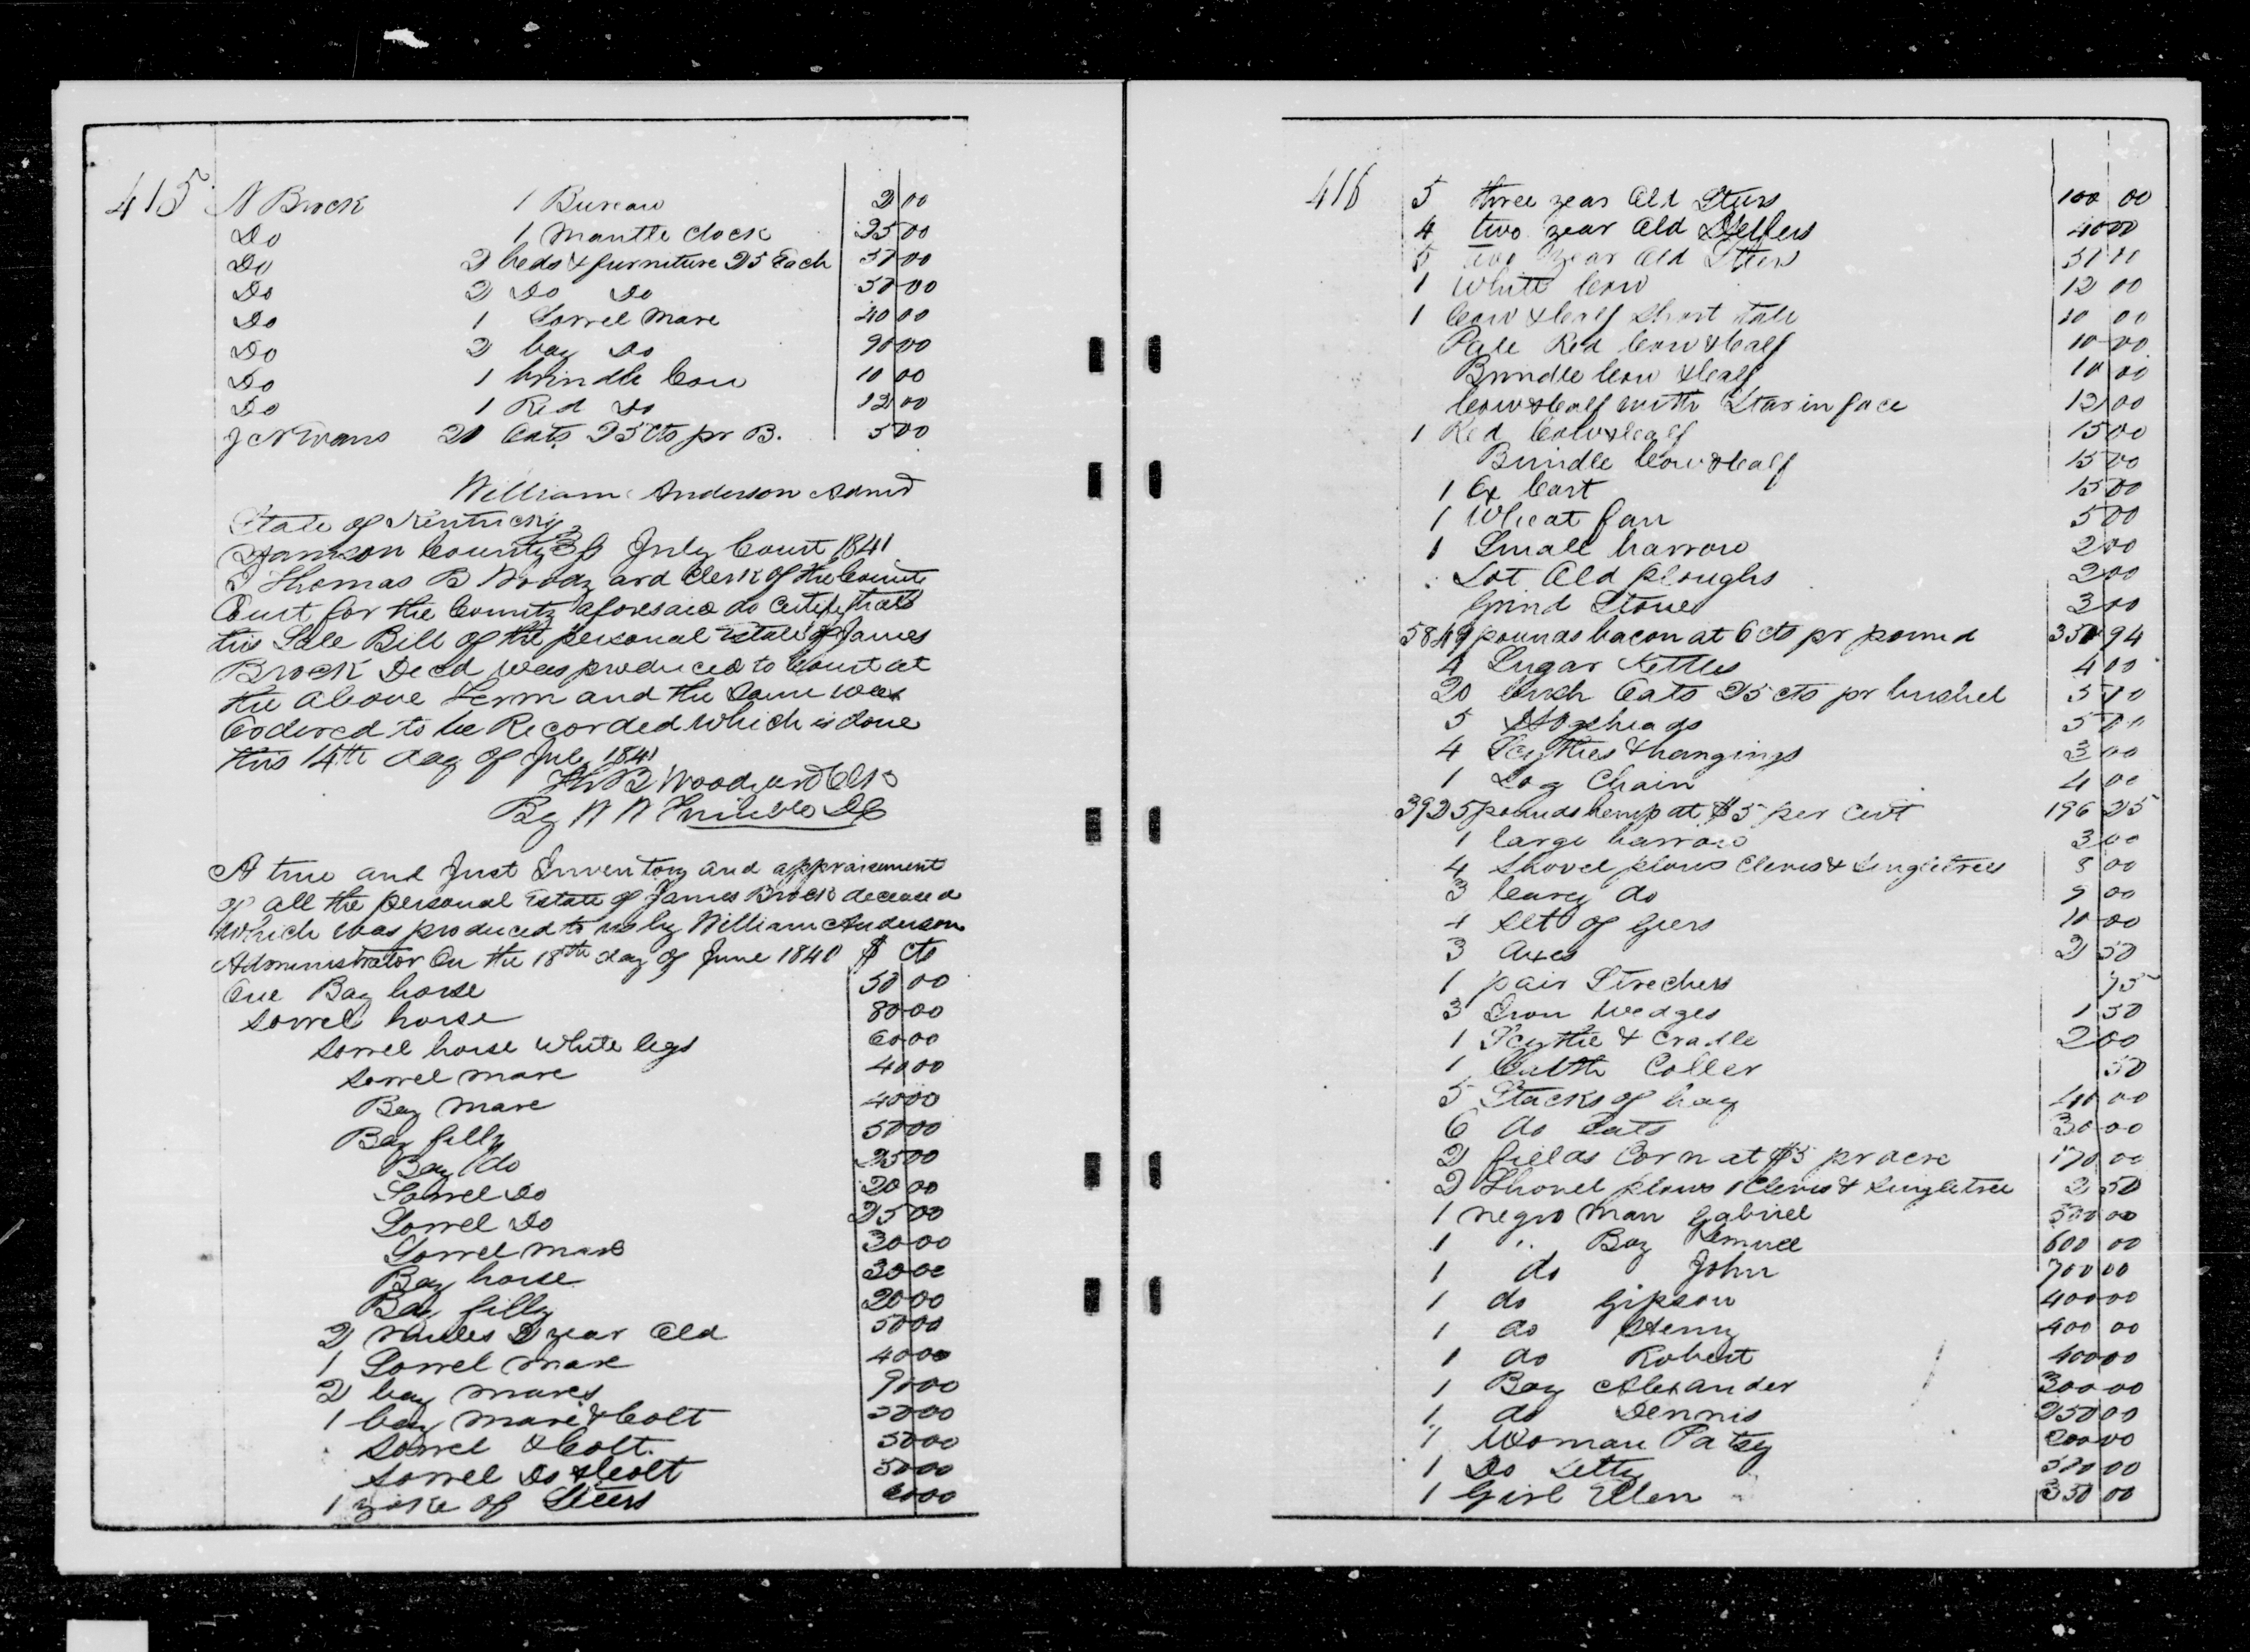 415 N Brock 1 Bureau 2 00
Do 1 Mantle clock 25 00
Do 2 beds & furniture 25 Each 50 00
Do 2 Do Do 50 00
Do 1 Sorrel Mare 40 00
Do 2 bay Do 90 00
Do 1 brindle Cow 10 00
Do 1 Red Do 12 00
J C N Evans 20 Oats 25 cts pr B. 5 00
William Anderson Admr
State of Kentucky
Harrison County July Court 1841
I Thomas B Woodyard Clerk of the County
Court for the County aforesaid do Certify that
this Sale Bill of the personal Estate of James
Brock Decd was produced to Court at
the above Term and the Same was
Ordered to be Recorded which is done
this 14th day of July 1841
Th B Woodyard Clk
By W W Trimble DC
A true and Just Inventory and appraisement
of all the personal Estate of James Brock deceased
which was produced to us by William Anderson
Administrator On the 18th day of June 1840 $ cts
One Bay horse 50 00
Sorrel horse 80 00
Sorrel horse White legs 60 00
Sorrel mare 40 00
Bay Mare 40 00
Bay filly 50 00
Bay do 25 00
Sorrel Do 20 00
Sorrel Do 25 00
Sorrel mare 30 00
Bay horse 30 00
Bay filly 20 00
2 Mules 2 year Old 50 00
1 Sorrel mare 40 00
2 bay mares 90 00
1 bay mare & Colt 50 00
Sorrel & Colt 50 00
Sorrel Do & Colt 50 00
1 yoke of Steers 00
416 5 three year Old Steers 100 00
4 two year Old Heffers 40 00
5 two year Old Steers 50 00
1 White Cow 12 00
1 Cow & Calf Short tale 10 00
Pale Red Cow & Calf 10 00
Brindle Cow & Calf 10 00
Cow & Calf with Star in face 12 00
1 Red Cow & Calf 15 00
Brindle Cow & Calf 15 00
1 Ox Cart 15 00
1 Wheat fan 5 00
1 Small harrow 2 00
Lot Old ploughs 2 00
Grind Stone 3 00
5849 pounds bacon at 6 cts pr pound 350 94
4 Sugar Kettles 4 00
20 bush Oats 25 cts pr bushel 5 00
5 Hogsheads 5 00
4 Scythes & hangings 3 00
1 Log Chain 4 00
3925 pounds hemp at $5 per Cwt 196 25
1 large harrow 3 00
4 Shovel plows Clevis & Singletrees 8 00
3 Carey do 9 00
4 Set of Geers 10 00
3 Axes 2 50
1 pair Strechers 75
3 Iron Wedges 1 50
1 Scythe & Cradle 2 00
1 Coller 50
5 Stacks of hay 40 00
6 do Oats 30 00
2 fields Corn at $5 pr acre 170 00
2 Shovel plows 1 Clevis & Singletree 2 50
1 negro man Gabriel 500 00
1 " Boy Lemuel 600 00
1 do John 700 00
1 do Gipson 400 00
1 do Henry 400 00
1 do Robert 400 00
1 Boy Alexander 300 00
1 do Dennis 250 00
1 Woman Patsy 200 00
1 Do Letty 500 00
1 Girl Ellen 350 00